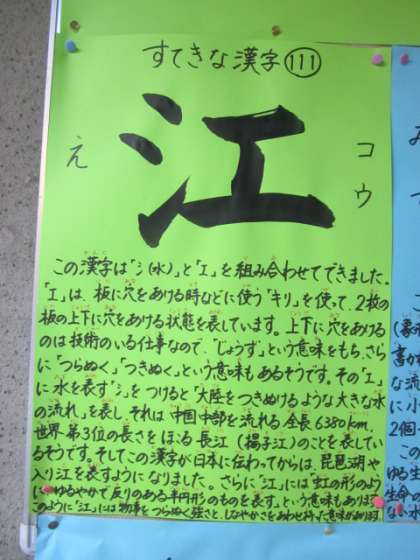 すてきな漢字 111
江
え
コウ
この漢字は「氵(水)」と「工」を組み合わせてできました。
「工」は、板に穴をあける時などに使う「キリ」を使って、2枚の
板の上下に穴をあける状態を表しています。上下に穴をあける
のは技術のいる仕事なので、「じょうず」という意味をもち、さら
に「つらぬく」「つきぬく」という意味もあるそうです。その「工」
に水を表す「氵」をつけると「大陸をつきぬけるような大きな水
の流れ」を表し、それは中国中部を流れる全長6380km、
世界第3位の長さをほこる長江(揚子江)のことを表してい
るそうです。そしてこの漢字が日本に伝わってからは、琵琶湖や
入り江を表すようになりました。さらに、「江」には「虹の形のよう
に ゆるやかで反りのある半円形のものを表す」という意味もあります。
このように「江」には物事をつらぬく強さと、しなやかさをあわせ持った意味があります。